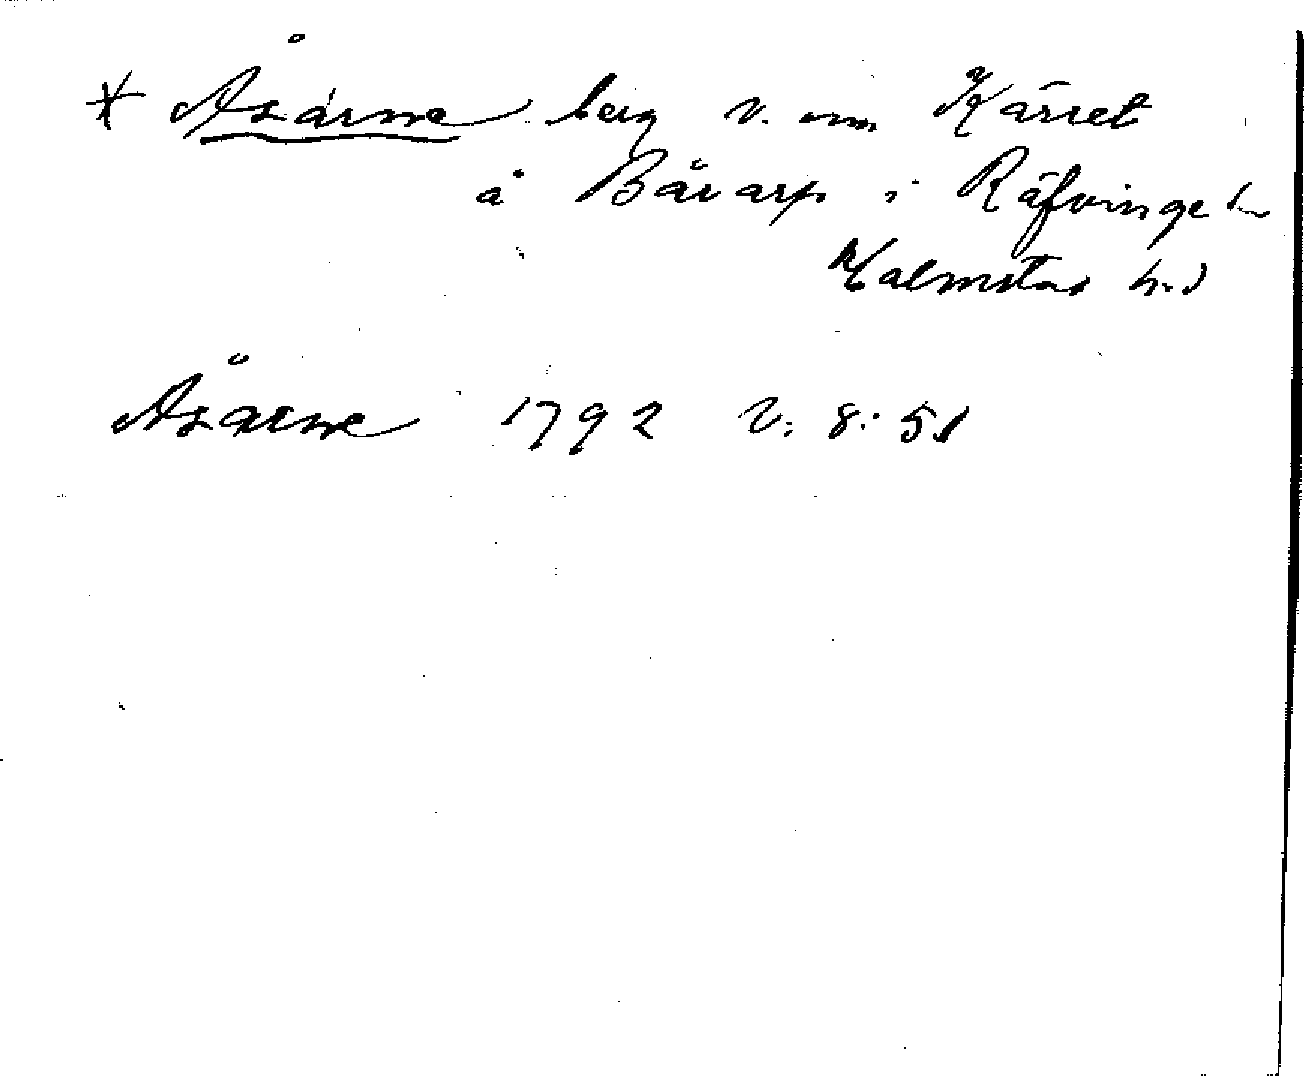 * Åsarne berg v. om Kärret
å Bårarp i Räfvinge sn
Halmstad hd
Åsarne 1792 V: 8: 51